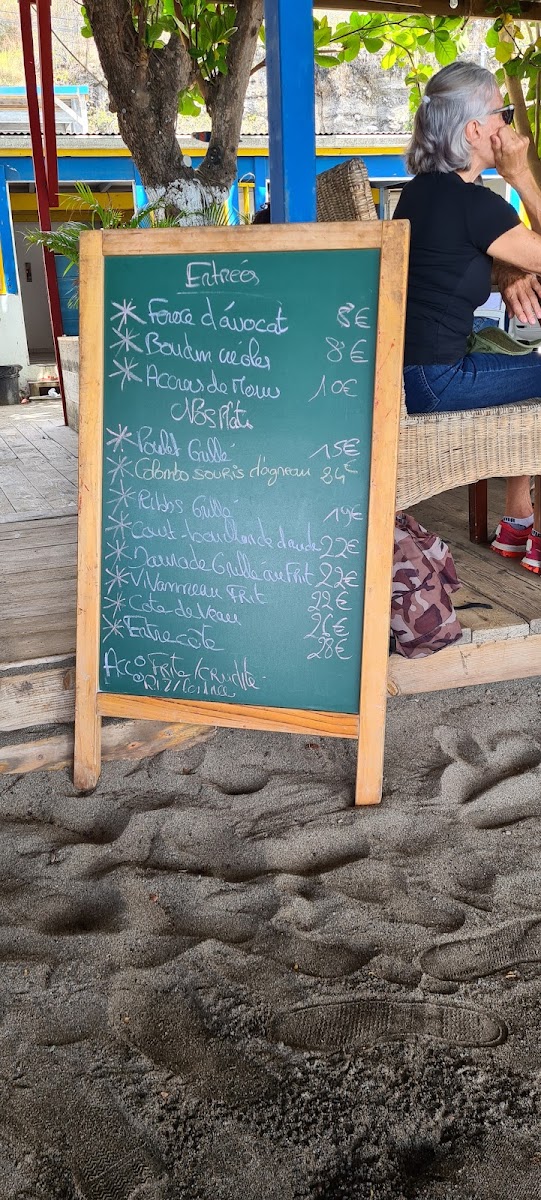 Entrées
Feroce d'avocat 8€
Boudin créoles 8€
Accras de Morue 10€
NOS Plats
Poulet Grillé 15€
Colombo souris d'agneau 24€
Ribbs Grillé 19€
Court-bouillon de daurade 22€
Daurade Grillé ou Frit 22€
Vivanneau Frit 22€
Cote de Veau 26€
Entrecote 28€
Acc: Frite/Crudité
RIZ/